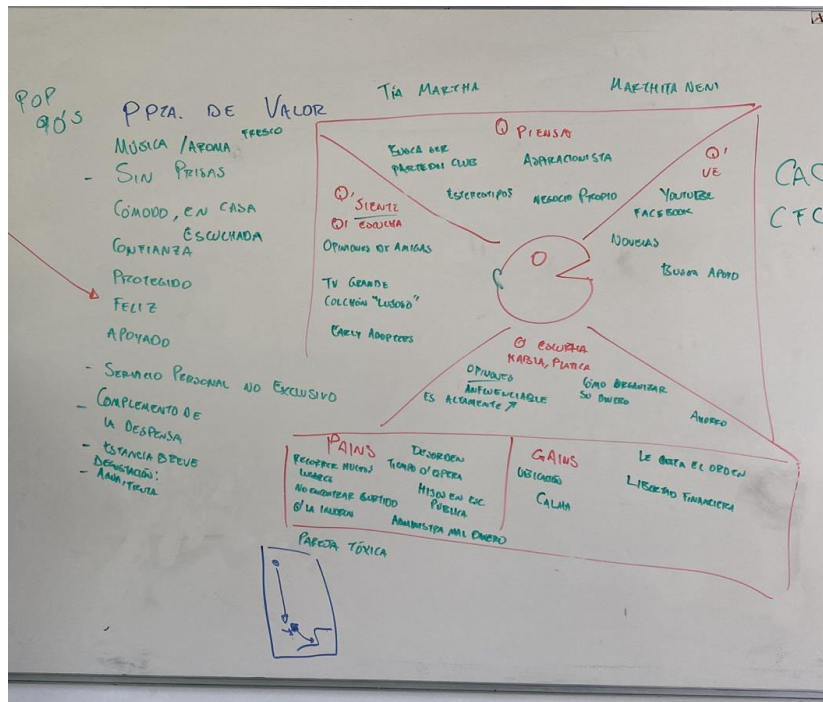 POP
90'S
PPTA. DE VALOR
MÚSICA / AROMA FRESCO
- SIN PRISAS
CÓMODO, EN CASA
ESCUCHADA
CONFIANZA
PROTEGIDO
FELIZ
APOYADO
- SERVICIO PERSONAL NO EXCLUSIVO
- COMPLEMENTO DE
LA DESPENSA
- ESTANCIA BREVE
DEGUSTACIÓN:
- AGUA, FRUTA
TÍA MARTHA
MARTHITA NENI
Q PIENSA
BUSCA SER
PARTE DEL CLUB
ASPIRACIONISTA
ESTEREOTIPOS
NEGOCIO PROPIO
Q'
VE
YOUTUBE
FACEBOOK
NOVELAS
BUSCA APOYO
Q'
SIENTE
Q' ESCUCHA
OPINIONES DE AMIGAS
TV GRANDE
COLCHÓN "LUJOSO"
EARLY ADOPTERS
Q' ESCUCHA
HABLA, PLATICA
ES ALTAMENTE
CÓMO ORGANIZAR
SU DINERO
AHORRO
PAINS
RECORRER MUCHOS
LUGARES
NO ENCONTRAR SURTIDO
DESORDEN
HIJOS EN ESC
PÚBLICA
ADMINISTRA MAL DINERO
PAREJA TÓXICA
GAINS
UBICACIÓN
CALMA
LE GUSTA EL ORDEN
LIBERTAD FINANCIERA